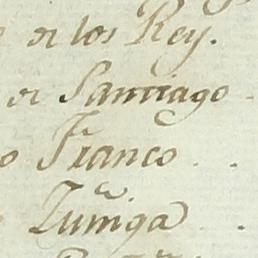 de los Rey.
de Santiago
o Franco
Zuñiga